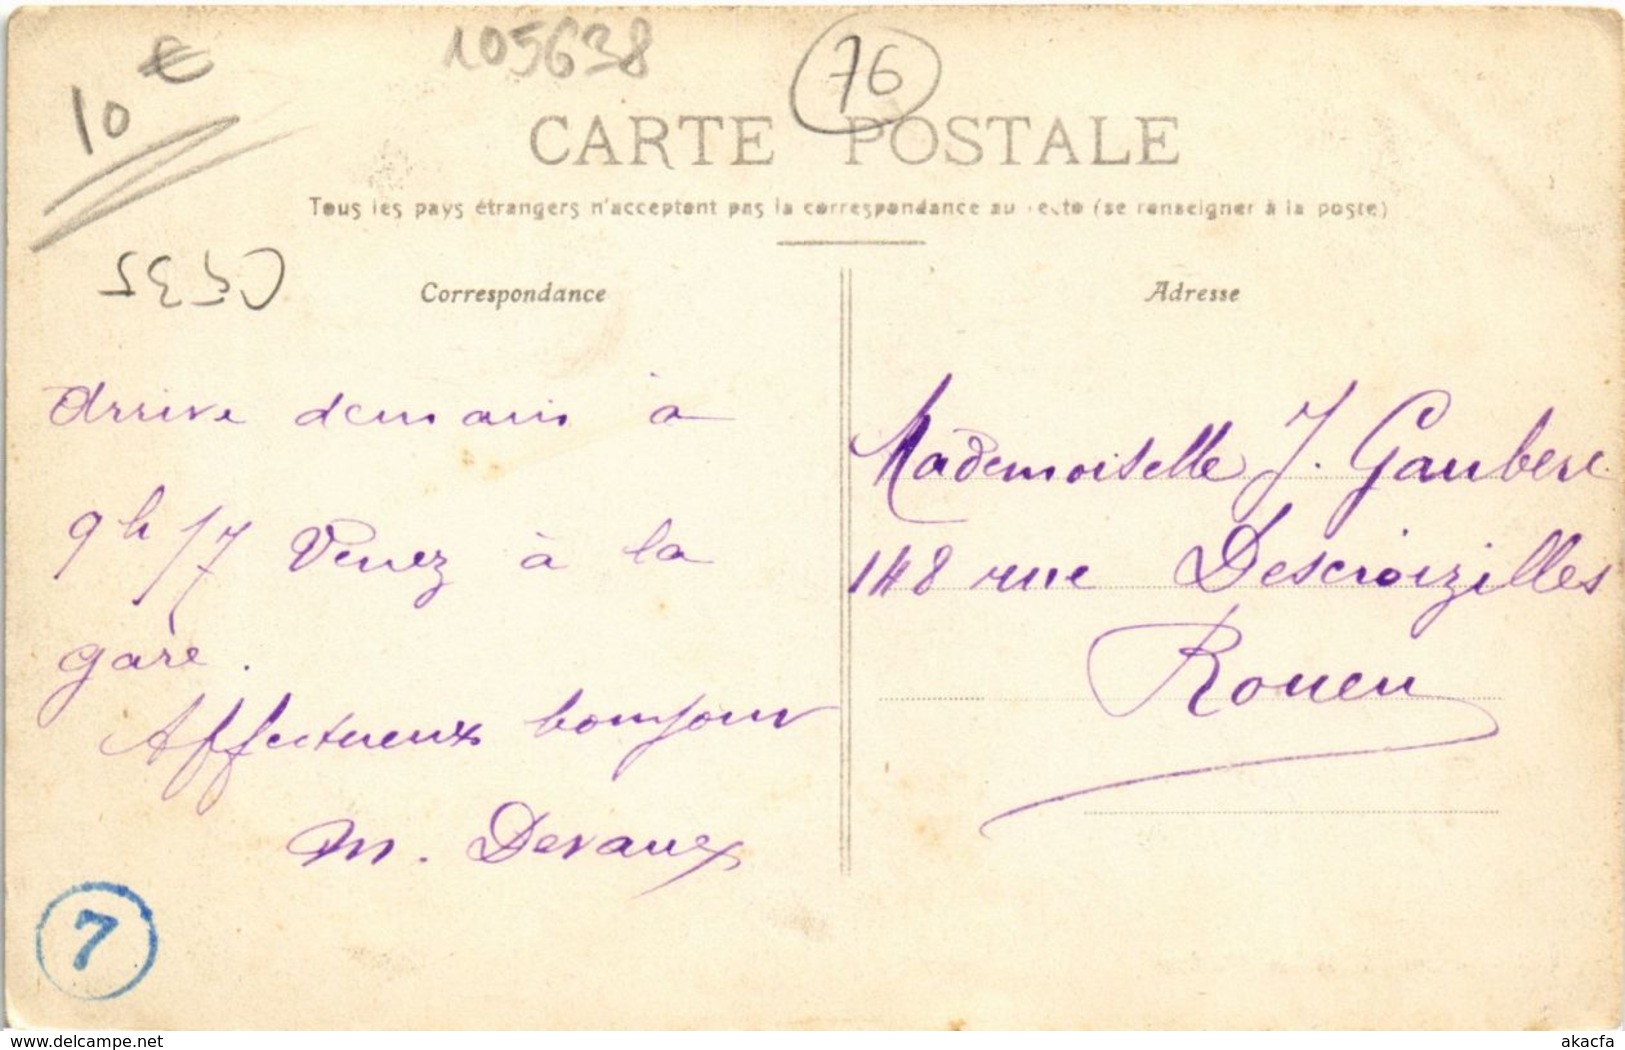 105638
76
10 €
CARTE POSTALE
Tous les pays étrangers n'acceptent pas la correspondance au recto (se renseigner à la poste)
Correspondance
Adresse
Arrive demain à
9h 17 Venez à la
gare.
Affectueux bonjour
M. Devaux
Mademoiselle J. Gaubert
148 rue Descroizilles
Rouen
7
www.delcampe.net
akacfa